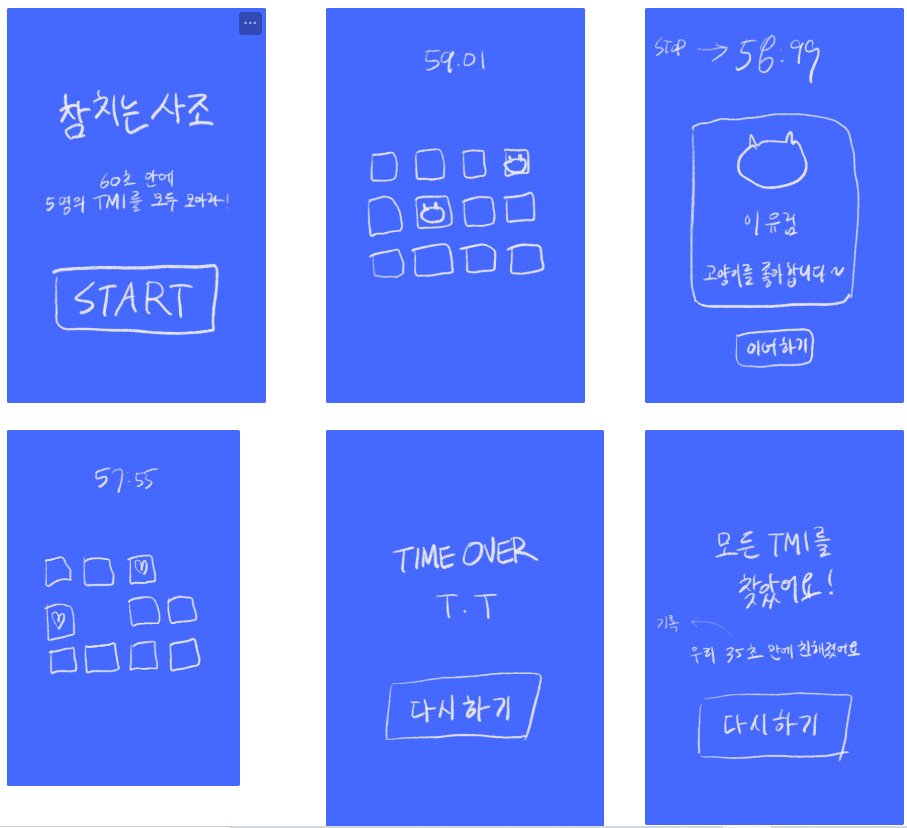 참치는 사조
60초 안에
5명의 TMI를 모두 모아라!
START
59:01
STOP
58:99
이유림
고양이를 좋아합니다~
이어하기
57:55
TIME OVER
T.T
다시하기
모든 TMI를
찾았어요!
기록
우리 35초 만에 친해졌어요
다시하기